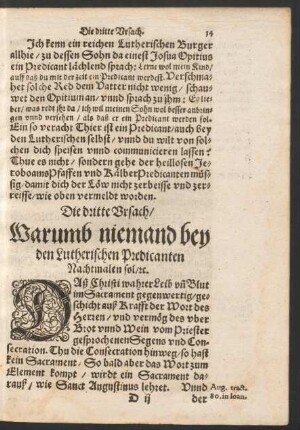 Die dritte Vrsach. 14
Ich kenn ein reichen Lutherischen Burger
allhie / zu dessen Sohn da einest Josua Opitius
ein Predicant lächlend sprach: Lerne wol mein Kind /
auff daß du mit der zeit ein Predicant werdest. Verschma-
het solche Red dem Vatter nicht wenig / schau-
wet den Opitium an / vnnd sprach zu jhm: Ey lie-
ber / was redt jhr da / ich wil meinen Sohn wol besser anbrin-
gen vnnd versehen / als daß er ein Predicant werden sol.
Ein so veracht Thier ist ein Predicant / auch bey
den Lutherischen selbst / vnnd du wilt von sol-
chen dich speisen vnnd communicieren lassen?
Thue es nicht / sondern gehe der heillosen Je-
roboams Pfaffen vnd Kälber Predicanten müs-
sig / damit dich der Löw nicht zerbeisse vnd zer-
reisse / wie oben vermeld worden.
Die dritte Vrsach /
Warumb niemand bey
den Lutherischen Predicanten
Nachtmalen sol / ec.
DAß Christi wahrer Leib vñ Blut
im Sacrament gegenwertig / ge-
schicht auß Krafft der Wort des
Herren / vnd vermög des vber
Brot vnnd Wein vom Priester
gesprochenen Segens vnd Con-
secration. Thu die Consecration hinweg / so hast
kein Sacrament / So bald aber das Wort zum
Element kompt / wirdt ein Sacrament da-
rauß / wie Sanct Augustinus lehret. Vnnd
Aug. tract.
80. in Ioan.
D ij der